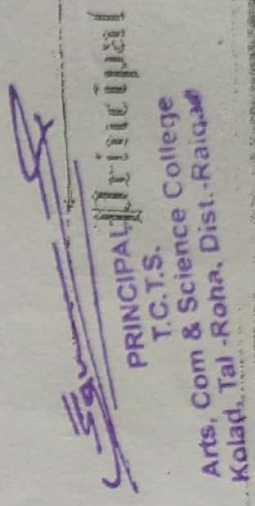 Principal
PRINCIPAL
T.C.T.S.
Arts, Com & Science College
Kolad, Tal -Roha, Dist.-Raigad